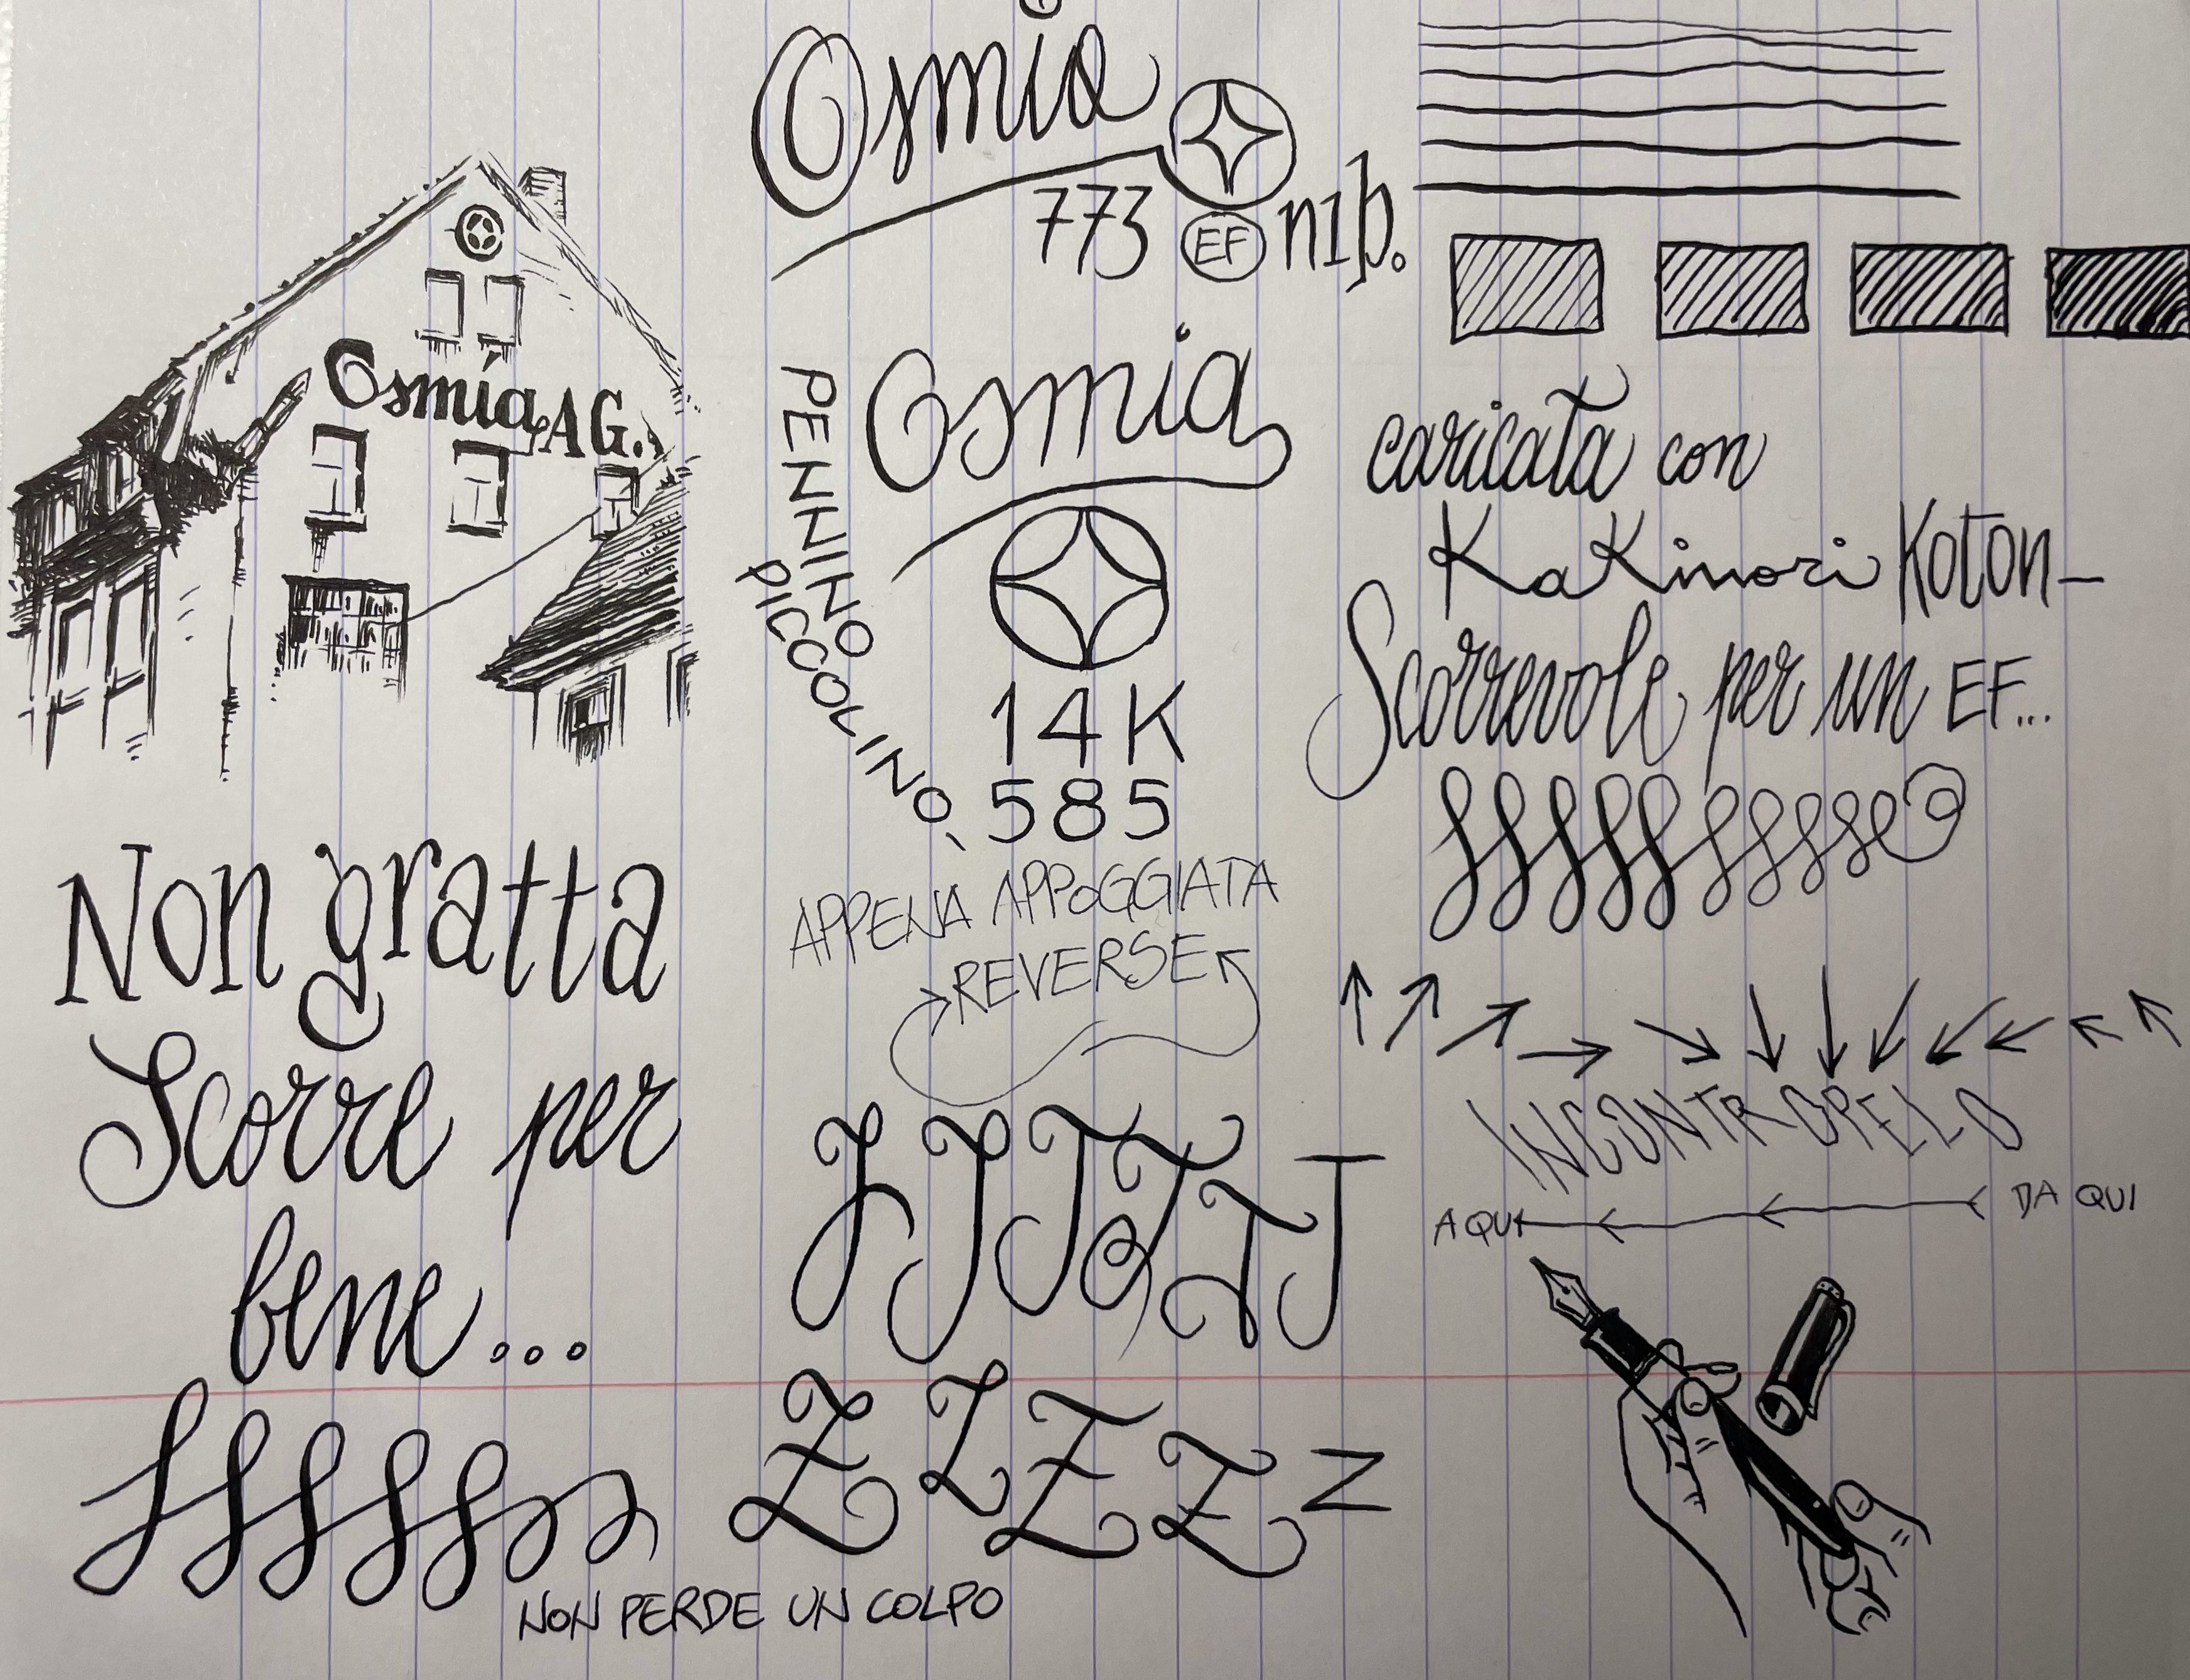 Osmia AG.
Non gratta
Scorre per
bene...
NON PERDE UN COLPO
Osmia
773 EF nib.
Osmia
PENNINO
PICCOLINO,
14K
585
APPENA APPOGGIATA
REVERSE
J J J J J J
Z Z Z Z Z
caricata con
KaKimori Koton-
Scorrevole per un EF...
INCONTROPELO
A QUI DA QUI